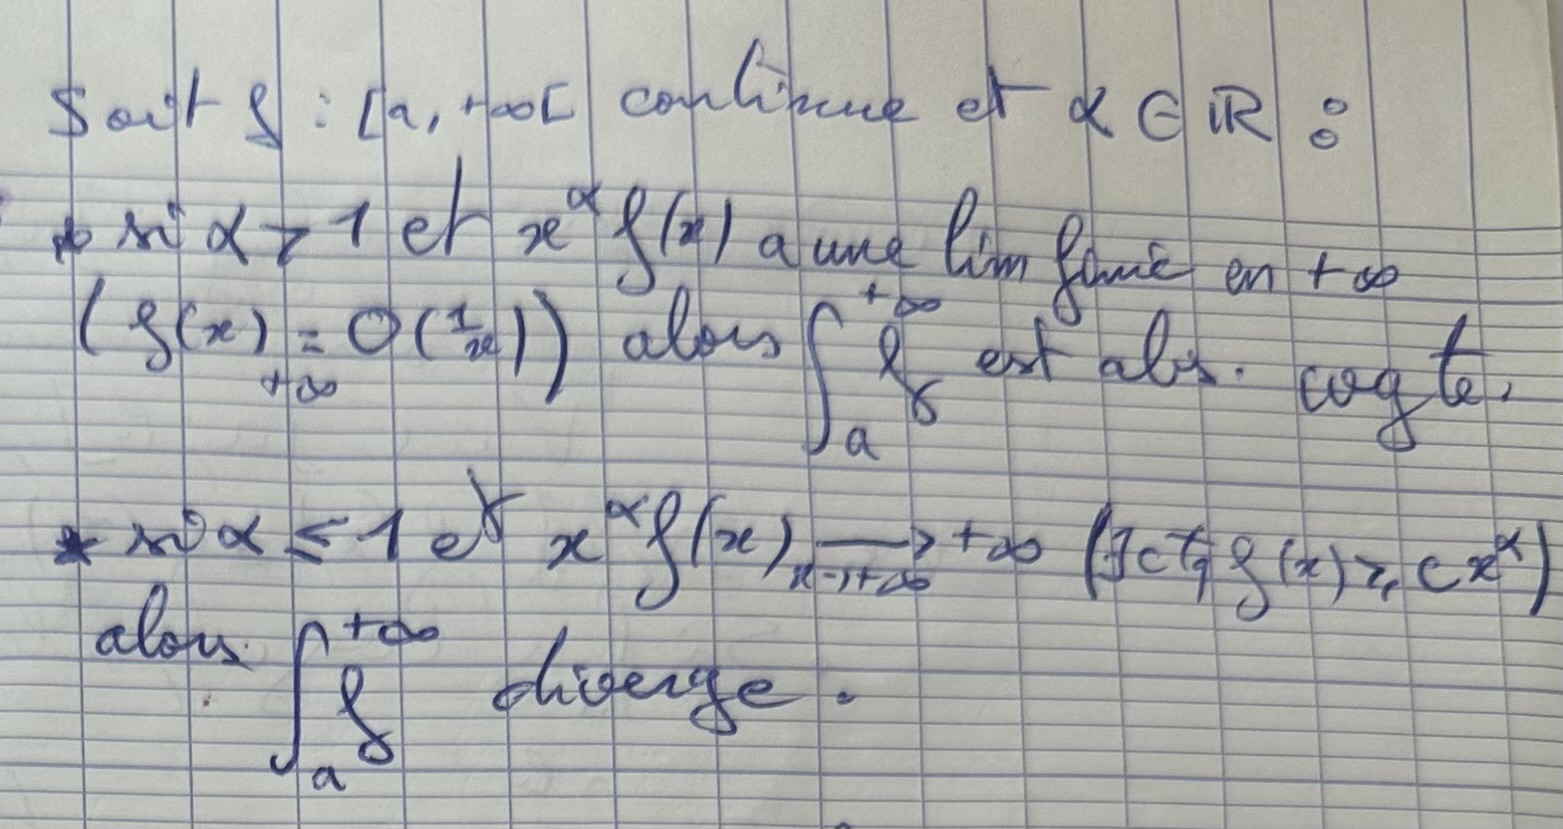 Soit f : [a, +∞[ continue et α ∈ ℝ :
* si α > 1 et x^α f(x) a une lim finie en +∞
(f(x) =_{+∞} O(1/x)) alors ∫_a^{+∞} f est abs. cvgte.
* si α ≤ 1 et x^α f(x) →_{x→+∞} +∞ (∃c tq f(x) ≥ c x^α)
alors ∫_a^{+∞} f diverge.